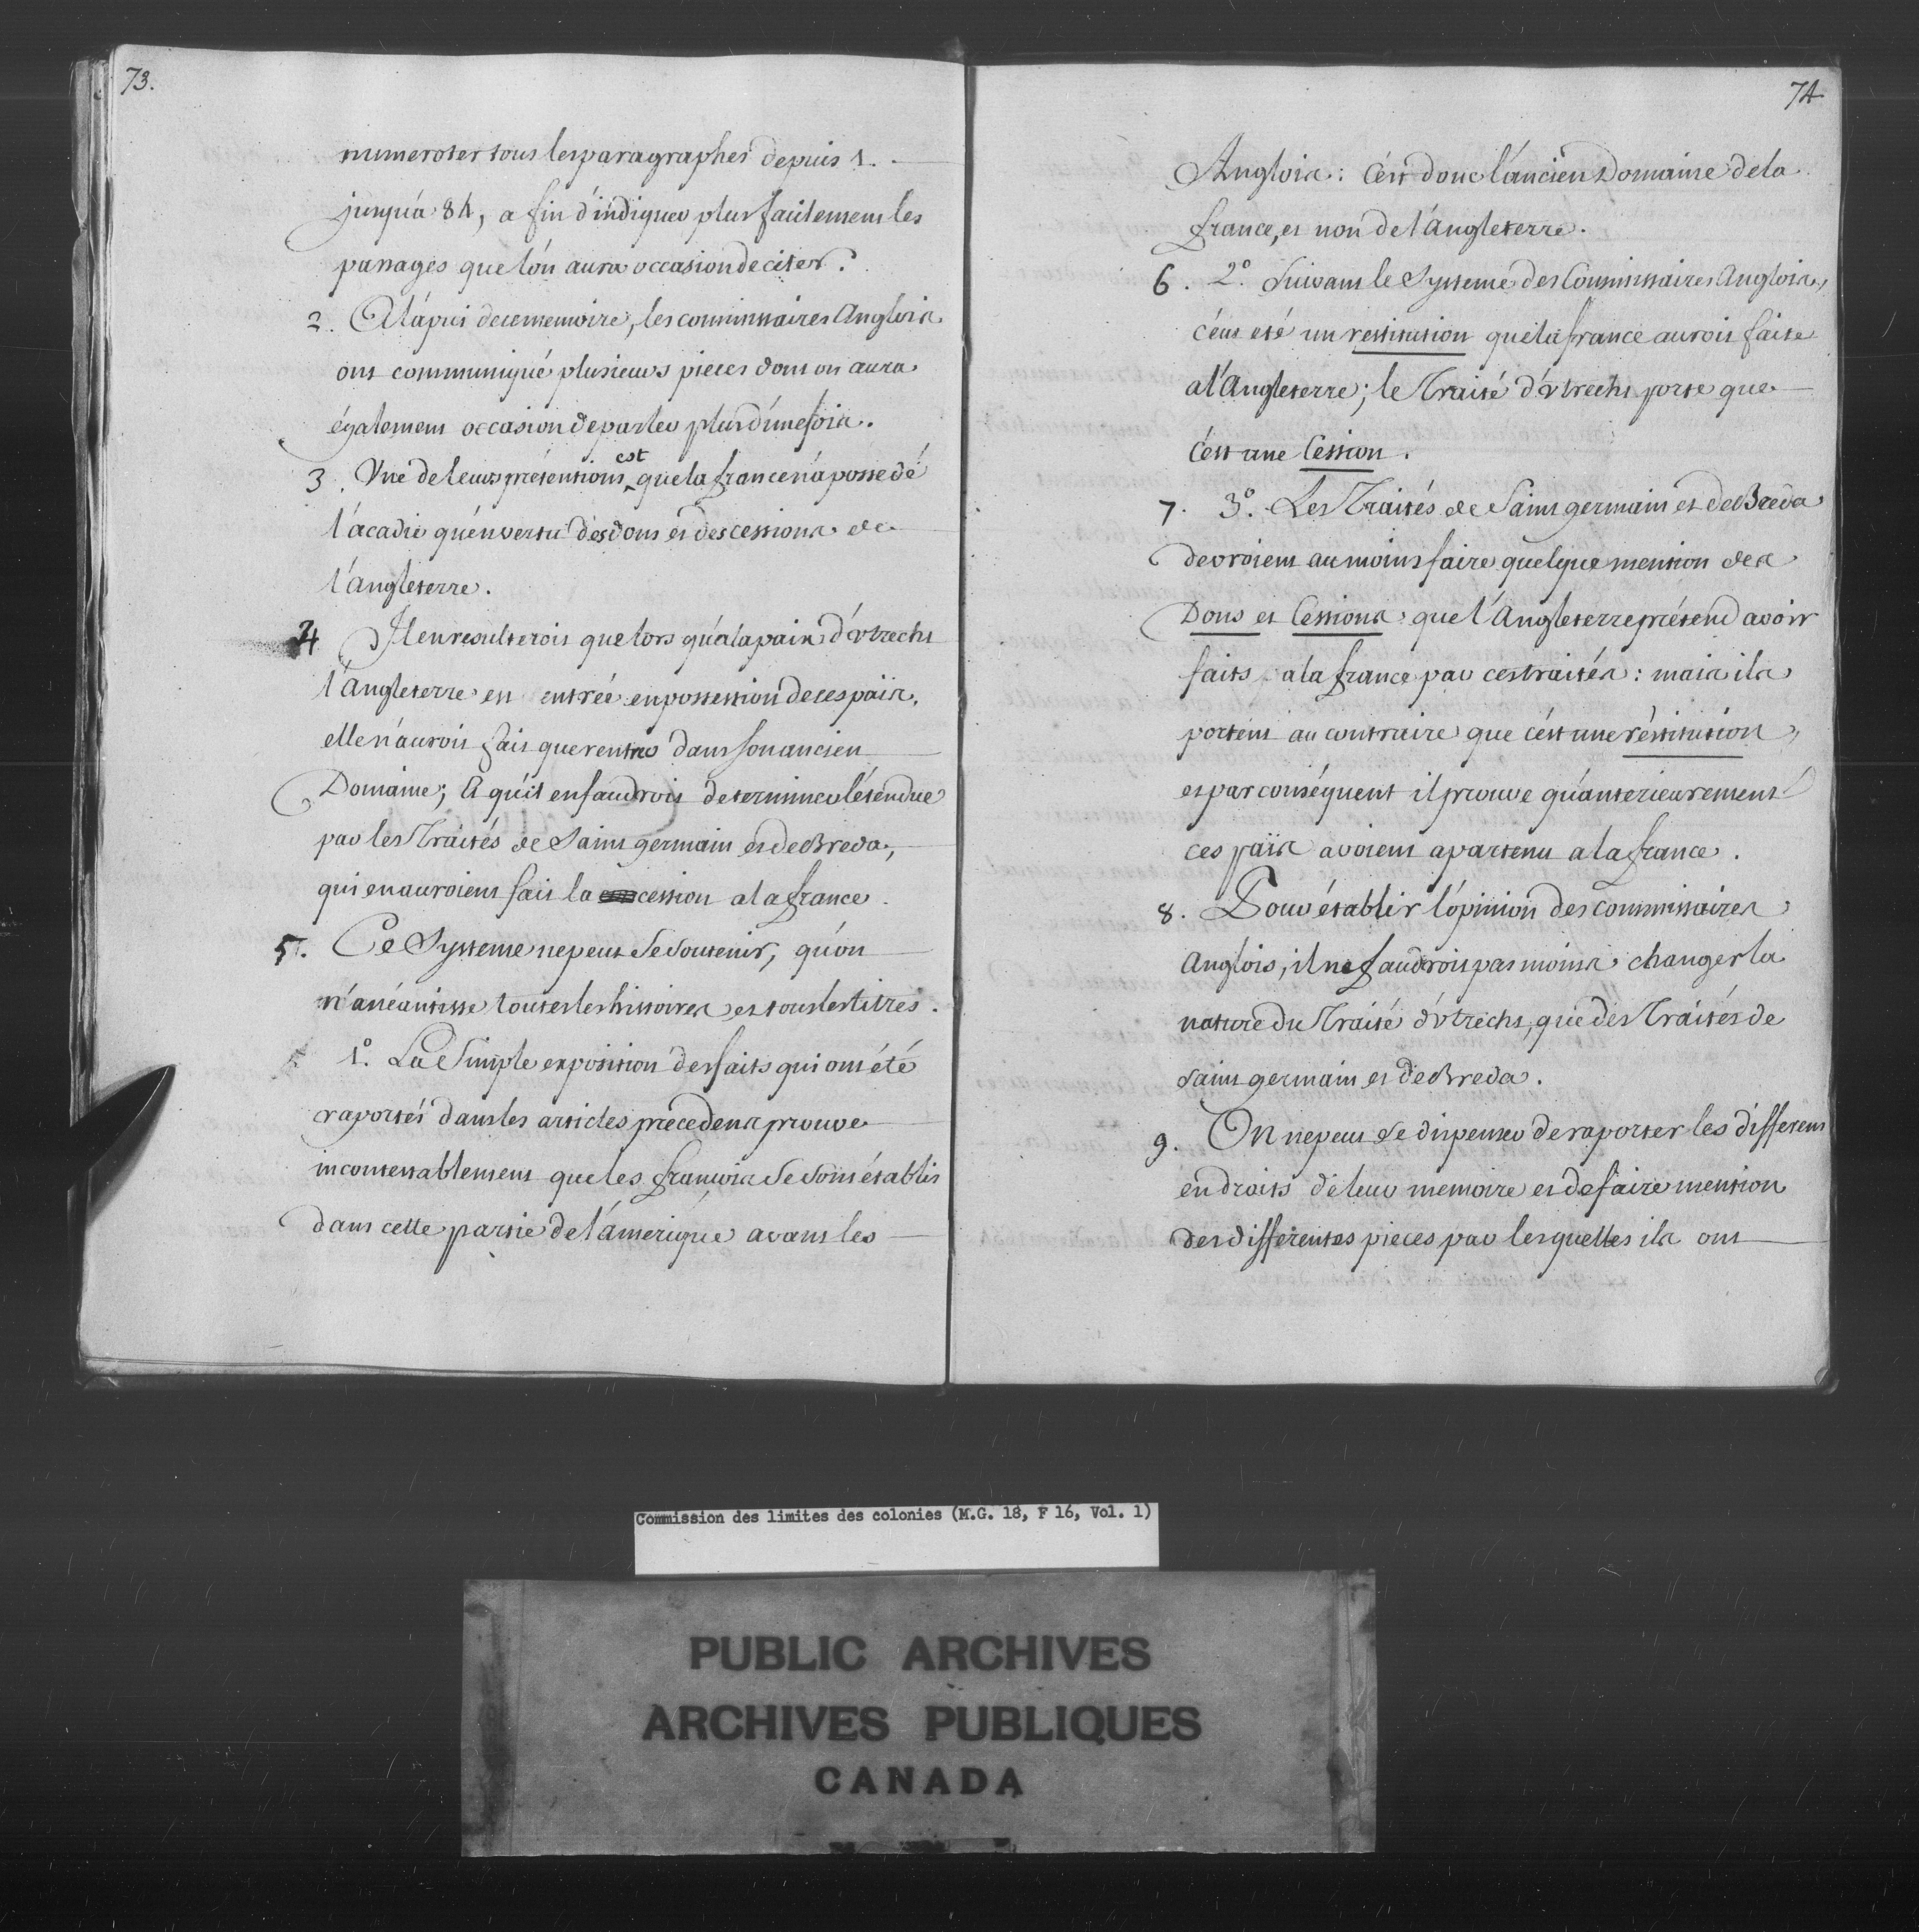 73.
numeroter tous les paragraphes depuis 1.
jusqu'à 84, a fin d'indiquer plus facilement les
passages que l'on aura occasion de citer.
2. A l'apui de ce memoire, les commissaires Anglois
ont communiqué plusieurs pieces dont on aura
également occasion de parler plus d'une fois.
3. Une de leurs prétentions est que la france n'a possedé
l'acadie qu'en vertu des dons et des cessions de
l'angleterre.
4 Il en resulteroit que lors qu'a la paix d'Utrecht
l'Angleterre est entrée en possession de ces païs,
elle n'auroit fait que rentrer dans son ancien
Domaine; & qu'il en faudroit determiner l'étendue
par les Traités de Saint germain et de Breda,
qui en auroient fait la cession a la france.
5. Ce Systeme ne peut se soutenir, qu'on
n'anéantisse toutes les histoires et tous les titres.
1.º La Simple exposition des faits qui ont été
raportés dans les articles précedens prouve
incontestablement que les françois se sont établis
dans cette partie de l'amerique avant les
74
Anglois: C'est donc l'ancien Domaine de la
france, et non de l'Angleterre.
6. 2.º Suivant le Systeme des Commissaires Anglois,
c'eut eté un restitution que la france auroit faite
a l'Angleterre; le Traité d'Utrecht porte que
c'est une Cession.
7. 3.º Les Traités de Saint germain et de Breda
devroient au moins faire quelque mention des
Dons et Cessions que l'Angleterre prétend avoir
faits a la france par ces traités: mais ils
portent au contraire que c'est une réstitution,
et par conséquent il prouve qu'anterieurement
ces païs avoient apartenu a la france.
8. Pour établir l'opinion des commissaires
Anglois, il ne faudroit pas moins changer la
nature du Traité d'Utrecht, que des Traités de
Saint germain et de Breda.
9. On ne peut se dispenser de raporter les différens
endroits de leur memoire et de faire mention
des différentes pieces par lesquelles ils ont
Commission des limites des colonies (M.G. 18, F 16, Vol. 1)
PUBLIC ARCHIVES
ARCHIVES PUBLIQUES
CANADA